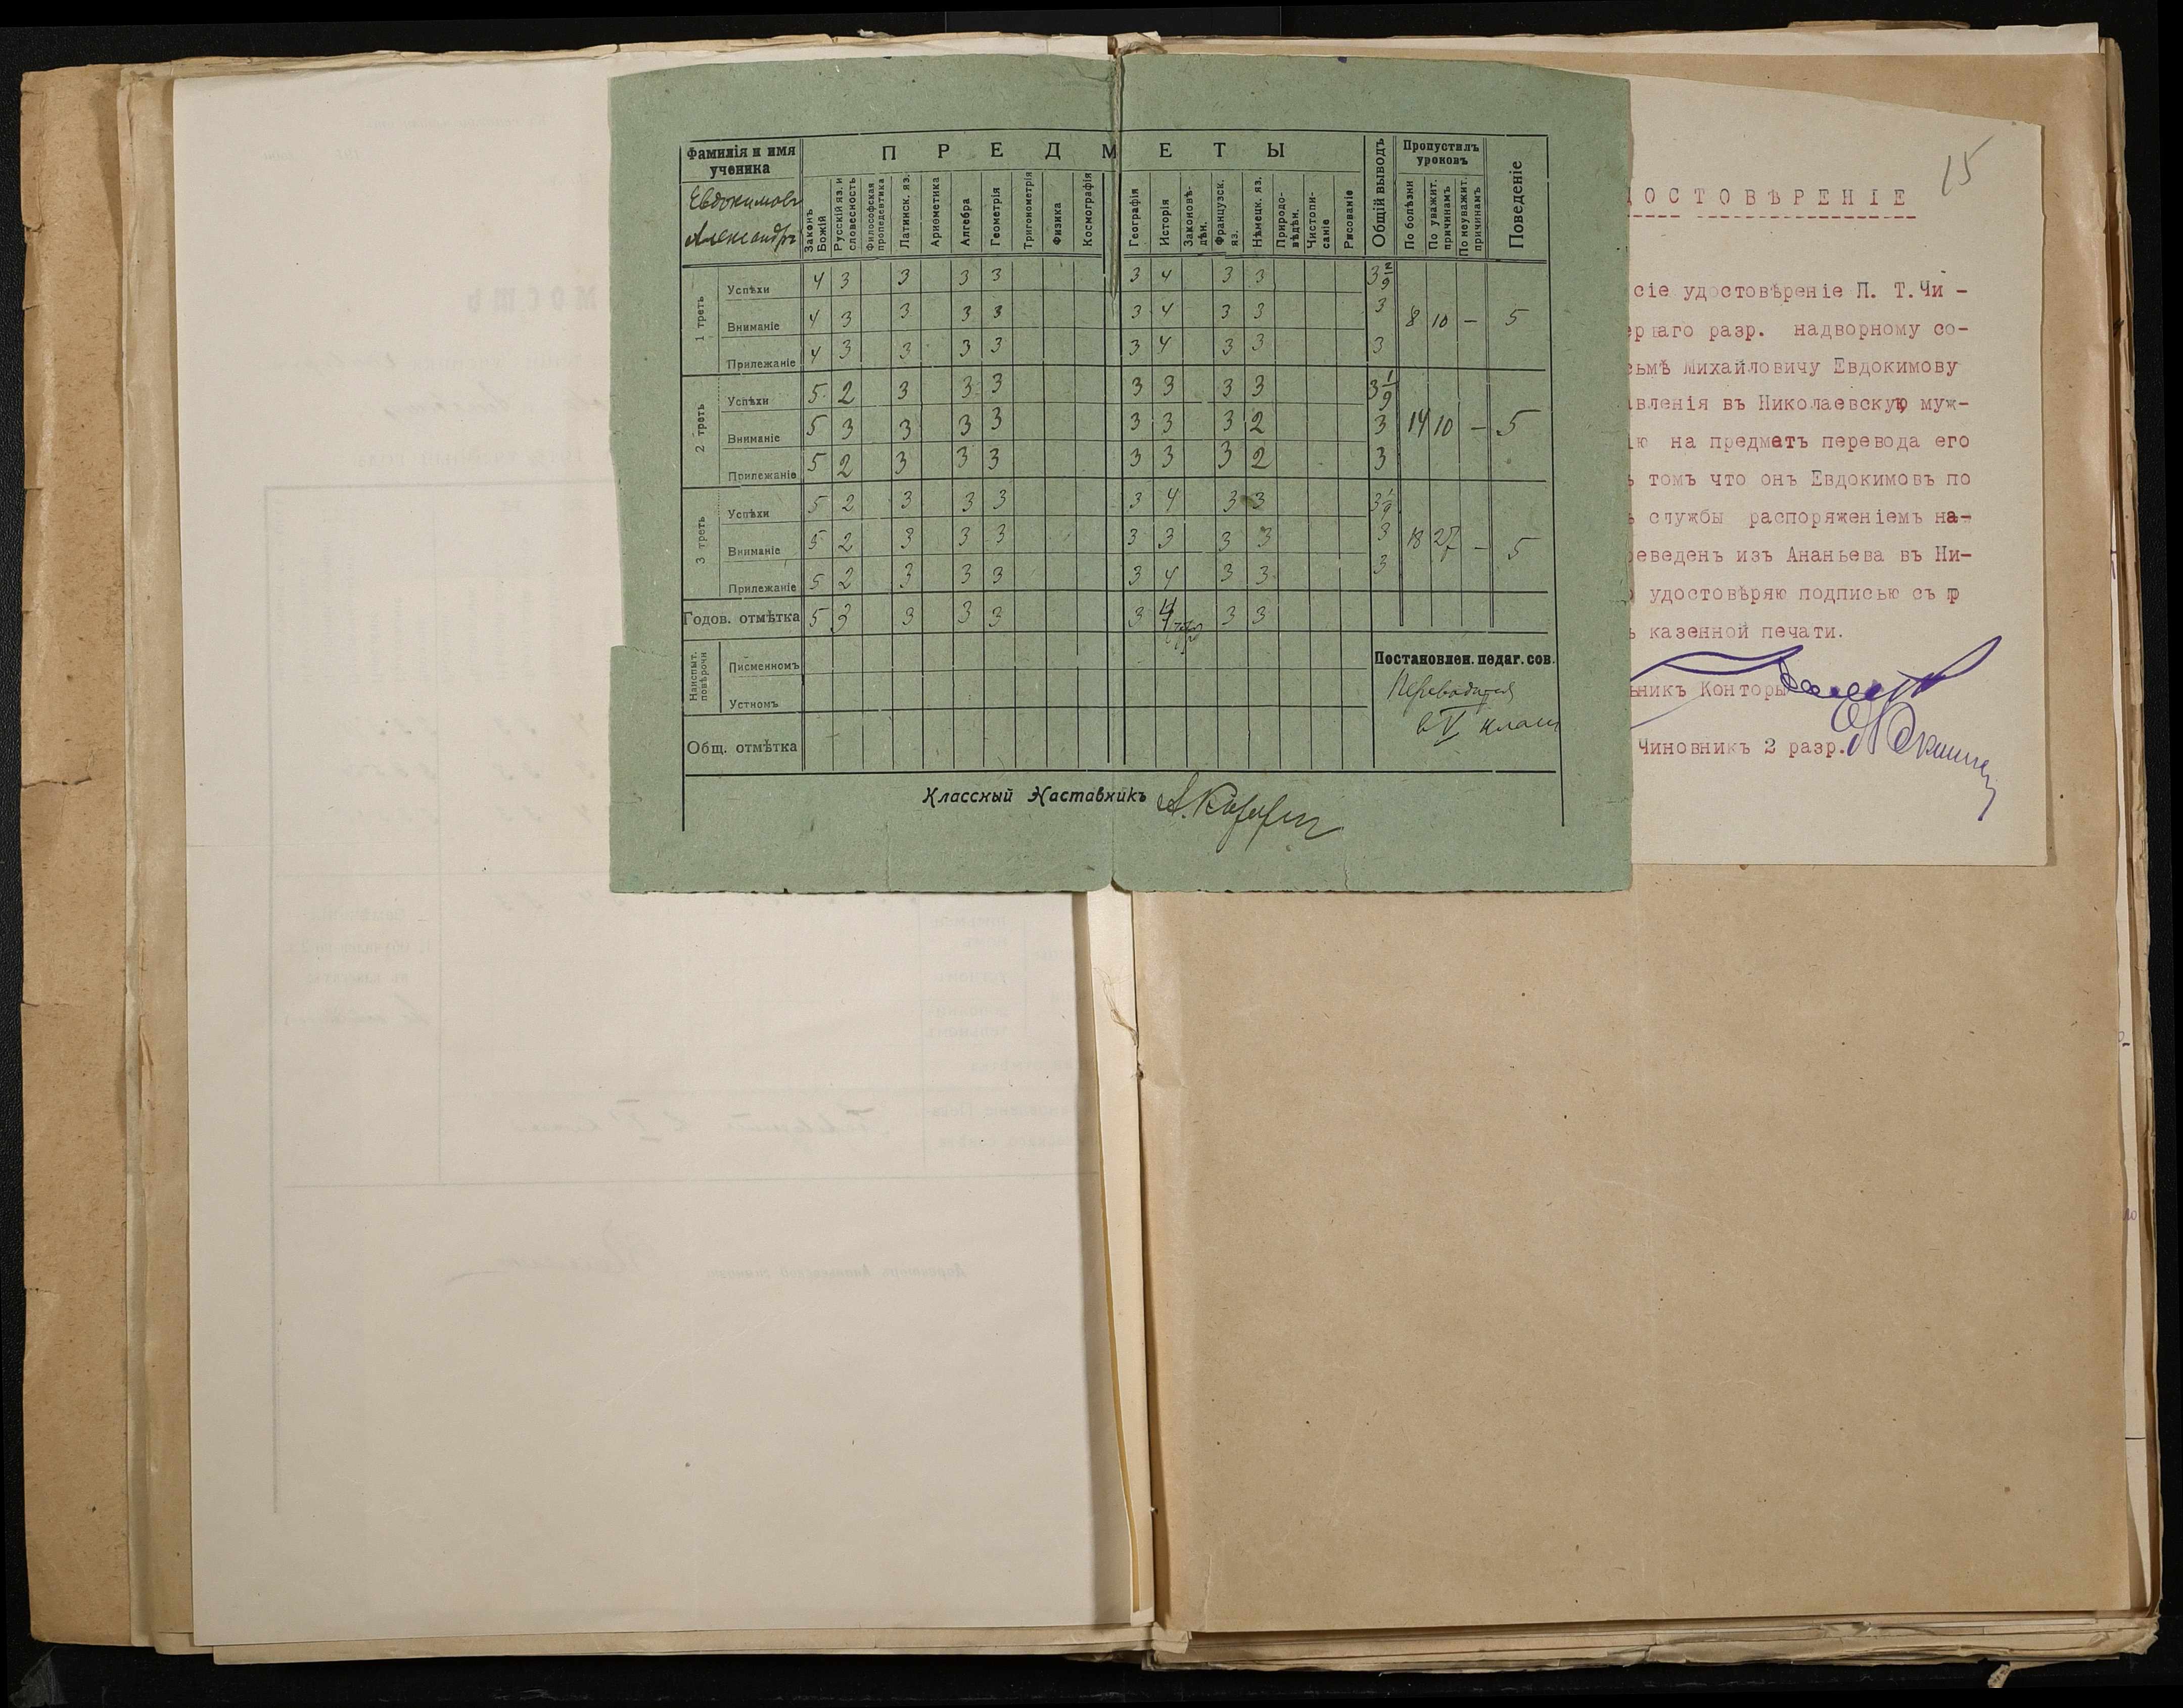 Фамилія и имя ученика
Евдокимовъ
Александръ
ПРЕДМЕТЫ
Законъ Божій
Русскій яз. и словесность
Философская пропедевтика
Латинск. яз.
Ариѳметика
Алгебра
Геометрія
Тригонометрія
Физика
Космографія
Географія
Исторія
Законовѣ-дѣн.
Французск. яз.
Нѣмецк. яз.
Природо-вѣдѣн.
Чистопи-саніе
Рисованіе
Общій выводъ
Пропустилъ уроковъ
По болѣзни
По уважит. причинамъ
По неуважит. причинамъ
Поведеніе
1 треть
Успѣхи 4 3 3 3 3 3 4 3 3 3 2/9
Вниманіе 4 3 3 3 3 3 4 3 3 3 8 10 — 5
Прилежаніе 4 3 3 3 3 3 4 3 3 3
2 треть
Успѣхи 5 2 3 3 3 3 3 3 3 3 1/9
Вниманіе 5 3 3 3 3 3 3 3 2 3 14 10 — 5
Прилежаніе 5 2 3 3 3 3 3 3 2 3
3 треть
Успѣхи 5 2 3 3 3 3 4 3 3 3 1/9
Вниманіе 5 2 3 3 3 3 3 3 3 3 18 27 — 5
Прилежаніе 5 2 3 3 3 3 4 3 3 3
Годов. отмѣтка 5 3 3 3 3 3 4 3 3
Наиспыт. повѣрочн
Писменномъ
Устномъ
Общ. отмѣтка
Постановлен. педаг. сов.
Переводится
в V класс
Классный Наставникъ
15
ДОСТОВѢРЕНІЕ
сіе удостовѣреніе П. Т. Чи -
ершаго разр. надворному со-
сьмѣ Михайловичу Евдокимову
авленія въ Николаевскую муж-
ію на предметъ перевода его
ъ томъ что онъ Евдокимовъ по
ъ службы распоряженіемъ на-
реведенъ изъ Ананьева въ Ни-
о удостовѣряю подписью съ пр
ъ казенной печати.
ьникъ Конторы
Чиновникъ 2 разр.